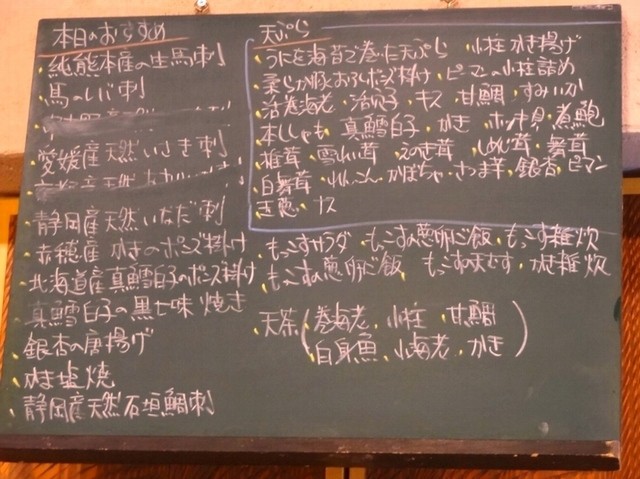 本日のおすすめ
純熊本産の生馬刺
馬のレバ刺
愛媛産天然いさき刺
静岡産天然いなだ刺
赤穂産 かきのポン酢掛け
北海道産真鱈白子のポン酢掛け
真鱈白子の黒七味焼き
銀杏の唐揚げ
かき塩焼
静岡産天然石垣鯛刺
天ぷら
うにを海苔で巻いた天ぷら 小柱かき揚げ
ピーマンの小柱詰め
活巻海老 キス 甘鯛 すみいか
本ししゃも 真鱈白子 かき ホッキ貝 煮鮑
椎茸 雪れい茸 えのき茸 しめじ茸 舞茸
白舞茸 れんこん かぼちゃ さつま芋 銀杏 ピーマン
玉葱 ナス
もっこすサラダ もっこすの葱卵ご飯 もっこす雑炊
もっこすの葱卵ご飯 かき雑炊
天茶(巻海老 小柱 甘鯛
白身魚 小海老 かき)